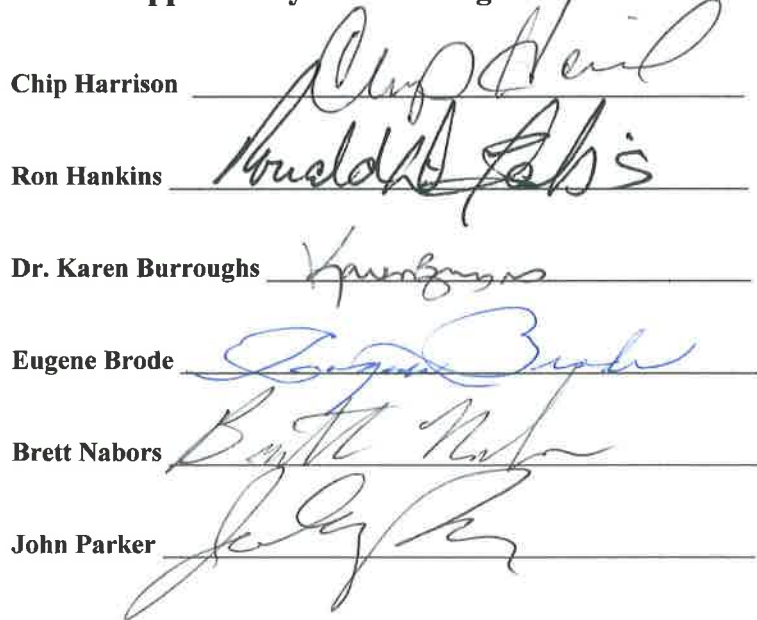 Chip Harrison Chip
Ron Hankins Ronald
Dr. Karen Burroughs Karen Burroughs
Eugene Brode Eugene Brode
Brett Nabors Brett Nabors
John Parker